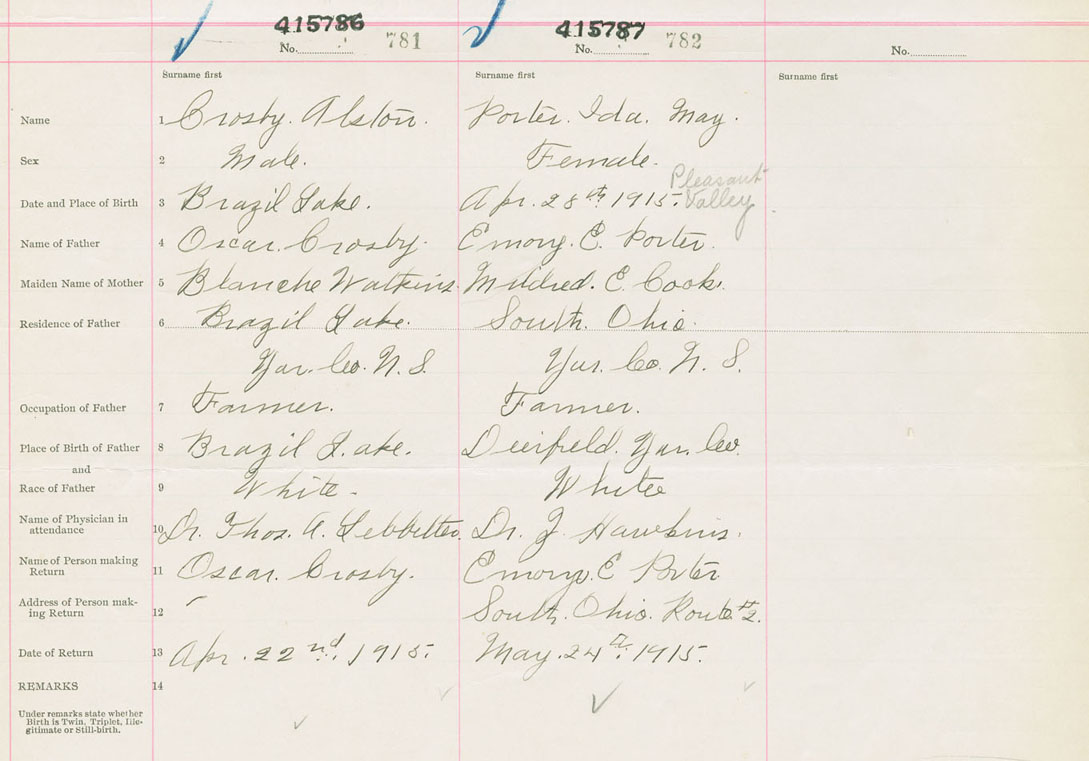 415786 415787
No. 781 No. 782 No.
Surname first Surname first Surname first
Name 1 Crosby. Alston. Porter. Ida. May.
Sex 2 Male. Female.
Pleasant
Date and Place of Birth 3 Brazil Lake. Apr. 28th 1915. Valley
Name of Father 4 Oscar. Crosby. Emory. E. Porter.
Maiden Name of Mother 5 Blanche Watkins. Mildred. E. Cook.
Residence of Father 6 Brazil Lake. South. Ohio.
Yar. Co. N. S. Yar. Co. N. S.
Occupation of Father 7 Farmer. Farmer.
Place of Birth of Father 8 Brazil Lake. Deerfield. Yar. Co.
and
Race of Father 9 White. White
Name of Physician in
attendance 10 Dr. Thos. A. Dr. J. Hawkins.
Name of Person making
Return 11 Oscar. Crosby. Emory. E Porter
Address of Person mak-
ing Return 12 South. Ohio. Route #2.
Date of Return 13 Apr. 22nd. 1915. May. 24th. 1915.
REMARKS 14
Under remarks state whether
Birth is Twin, Triplet, Ille-
gitimate or Still-birth.